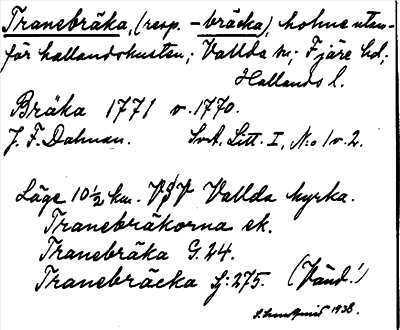 Tranebräka, (resp. -bräcka), holme utan-
för hallandskusten; Vallda sn; Fjäre hd;
Hallands l.
Bräka 1771 v. 1770.
J. F. Dahman. SvA. Litt. I, N:o 1 v. 2.
Läge 10 1/2 km. VSV Vallda kyrka.
Tranebräkorna ek.
Tranebräka G. 24.
Tranebräcka Sj: 275. (Vänd!)
1938.